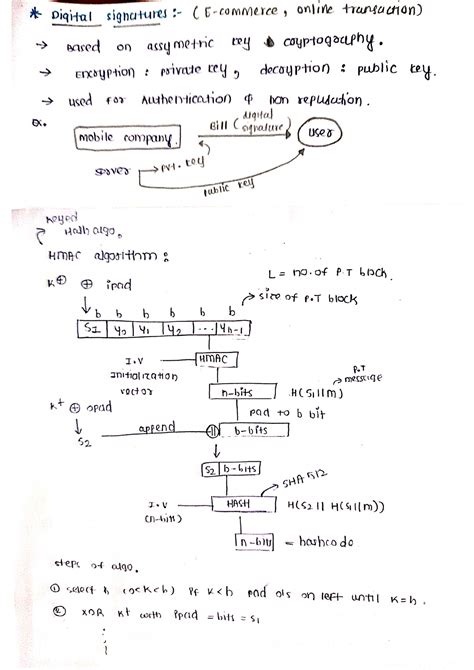 * Digital signatures :- ( E-commerce, online transaction)
→ Based on assymetric key & cryptography.
→ Encryption : private key, decryption : public key.
→ used for Authentication & non repudation.
Ex.
mobile company.
Bill (digital signature)
user
server → pvt. key
public key
keyed
Hash algo.
HMAC algorithm :
K⊕ ⊕ ipad
L = no. of P.T block.
b b b b b → size of P.T block
S1 Y0 Y1 Y2 ... Yn-1
I.V
initialization
vector
HMAC
P.T
message
n-bits H(S1||m)
pad to b bit
K+ ⊕ opad
S2
append
|| b-bits
S2 b-bits
SHA 512
I.V
(n-bits)
HASH H(S2|| H(S1||m))
n-bits = hashcode
steps of algo.
① select k (0<k<b) if k<b pad 0's on left until k=b.
② XOR K+ with ipad = bits = S1